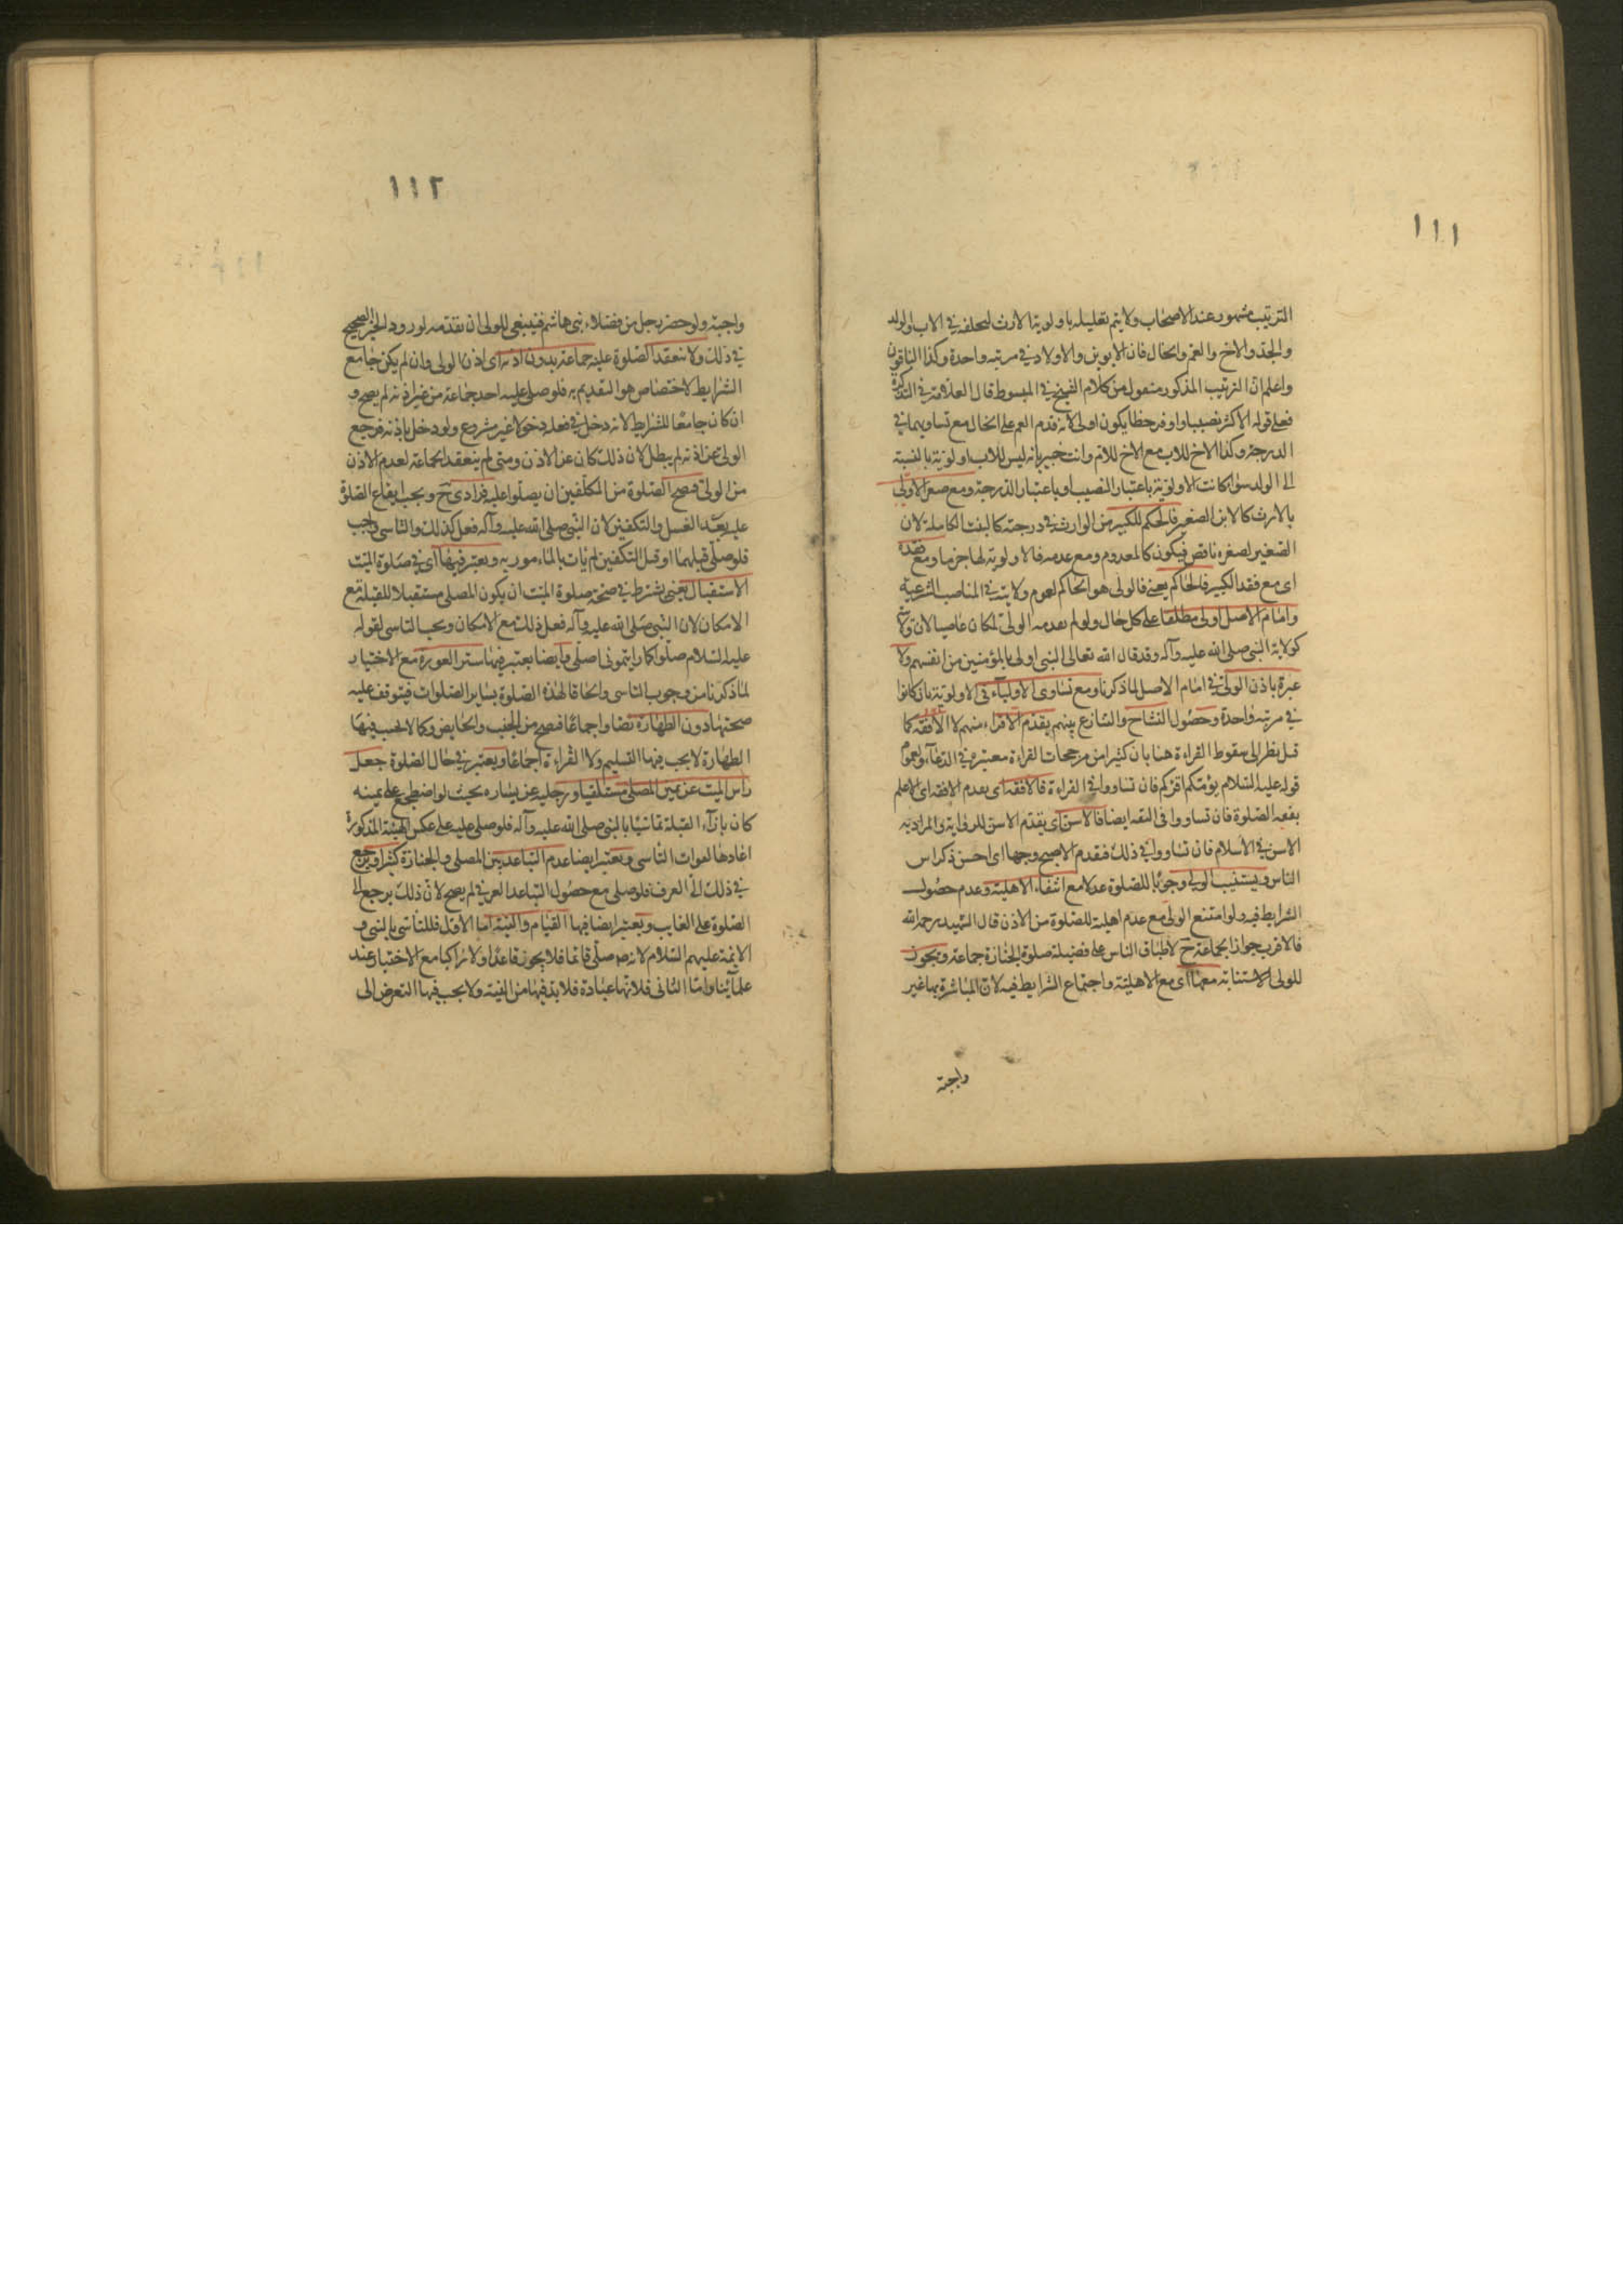 ١١١
الترتيب مشهور عند الاصحاب ولا يتم تعليله باولوية الارث لتخلفه في الاب والولد
والجد والاخ والعم والخال فان الابوين والاولاد في مرتبه واحدة وكذا الباقون
واعلم ان الترتيب المذكور منقول من كلام الشيخ في المبسوط قال العلامة في التذكرة
فعلى قوله الاكثر نصيبا واوفر حظا يكون اولى لانه قدم العم على الخال مع تساويهما في
الدرجة وكذا الاخ للاب مع الاخ للام وانت خبير بانه ليس للاب اولوية بالنسبة
الى الولد سواء كانت الاولوية باعتبار النصيب او باعتبار الدرجة ومع صغر الاولى
بالارث كالابن الصغير فالحكم للكبير من الوارث في درجته كالبنت الكاملة لان
الصغير لصغره ناقص فيكون كالمعدوم ومع عدمه فالاولوية لها جزما ومع فقده
اى مع فقد الكبير فالحاكم يعنى فالولى هو الحاكم لعموم ولايته في المناصب الشرعية
وامام الاصل اولى مطلقا على كل حال ولو لم يقدمه الولى لكان عاصيا لان ولايته
كولاية النبى صلى الله عليه وآله وقد قال الله تعالى النبى اولى بالمؤمنين من انفسهم ولا
عبرة باذن الولى في امام الاصل لما ذكرنا ومع تساوى الاولياء في الاولوية بان كانوا
في مرتبة واحدة وحصول التشاح والتنازع بينهم يقدم الاقراء منهم لا الافقه كما
قيل نظرا الى سقوط القراءة هنا بان كثيرا من مرجحات القراءة معتبرة في الدعاء ولعموم
قوله عليه السلام يؤمكم اقرئكم فان تساووا في القراءة فالافقه اى يقدم الافقه اى الاعلم
بفقه الصلوة فان تساووا فى الفقه ايضا فالاسن اى يقدم الاسن للرواية والمراد به
الاسن في الاسلام فان تساووا في ذلك فيقدم الاصبح وجها اى احسن ذكرا بين
الناس ويستنيب الولى وجوبا للصلوة عدلا مع انتفاء الاهلية وعدم حصول
الشرايط فيه ولو امتنع الولى مع عدم اهليته للصلوة من الاذن قال الشهيد رحمه الله
فالاقرب جواز الجماعة ح لاطباق الناس على فضيلة صلوة الجنازة جماعة ويجوز
للولى الاستنابة معها اى مع الاهلية واجتماع الشرايط فيه لان المباشرة بها غير
واجبة
١١٢
واجبة ولو حضر رجل من فضلاء بنى هاشم فينبغى للولى ان يقدمه لورود الخبر الصحيح
في ذلك ولا تنعقد الصلوة عليه جماعة بدون اذنه اى اذن الولى وان لم يكن جامع
الشرايط لاختصاص هو التقديم به فلو صلى عليه احد بجماعة من غير اذنه لم يصح و
ان كان جامعا للشرايط لانه دخل في فعله دخولا غير مشروع ولو دخل باذنه فرجع
الولى عن اذنه لم يبطل لان ذلك كان عن الاذن ومتى لم ينعقد الجماعة لعدم الاذن
من الولى فيصح الصلوة من المكلفين ان يصلوا عليه فرادى ح ويجب ايقاع الصلوة
عليه بعد الغسل والتكفين لان النبى صلى الله عليه وآله فعل كذلك والتاسى واجب
فلو صلى قبلهما او قبل التكفين لم يات بالمامور به ويعتبر فيها اى في صلوة الميت
الاستقبال يعنى يشترط في صحة صلوة الميت ان يكون المصلى مستقبلا للقبلة مع
الامكان لان النبى صلى الله عليه وآله فعل ذلك مع الامكان ويجب التاسى لقوله
عليه السلام صلوا كما رايتمونى اصلى وايضا يعتبر فيها ستر العورة مع الاختيار
لما ذكرنا من وجوب التاسى والحاقا لهذه الصلوة بساير الصلوات فيتوقف عليه
صحتها دون الطهارة نصا واجماعا فيصح من الجنب والحايض وكما لا يجب فيها
الطهارة لا يجب فيها التسليم ولا القراءة اجماعا ويعتبر في حال الصلوة جعل
راس الميت عن يمين المصلى مستلقيا ورجليه عن يساره بحيث لو اضطجع على يمينه
كان بازاء القبلة تاسيا بالنبى صلى الله عليه وآله فلو صلى عليه على عكس الهيئة المذكورة
اعادها لفوات التاسى ويعتبر ايضا عدم التباعد بين المصلى والجنازة كثيرا ويرجع
في ذلك الى العرف فلو صلى مع حصول التباعد العرفي لم يصح لان ذلك يرجع الى
الصلوة على الغايب ويعتبر ايضا فيها القيام والنية اما الاول فللتاسى بالنبى و
الائمة عليهم السلام لانه صلى قائما فلا يجوز قاعدا ولا راكبا مع الاختيار عند
علمائنا واما الثانى فلانها عبادة فلابد فيها من النية ولا يجب فيها التعرض الى